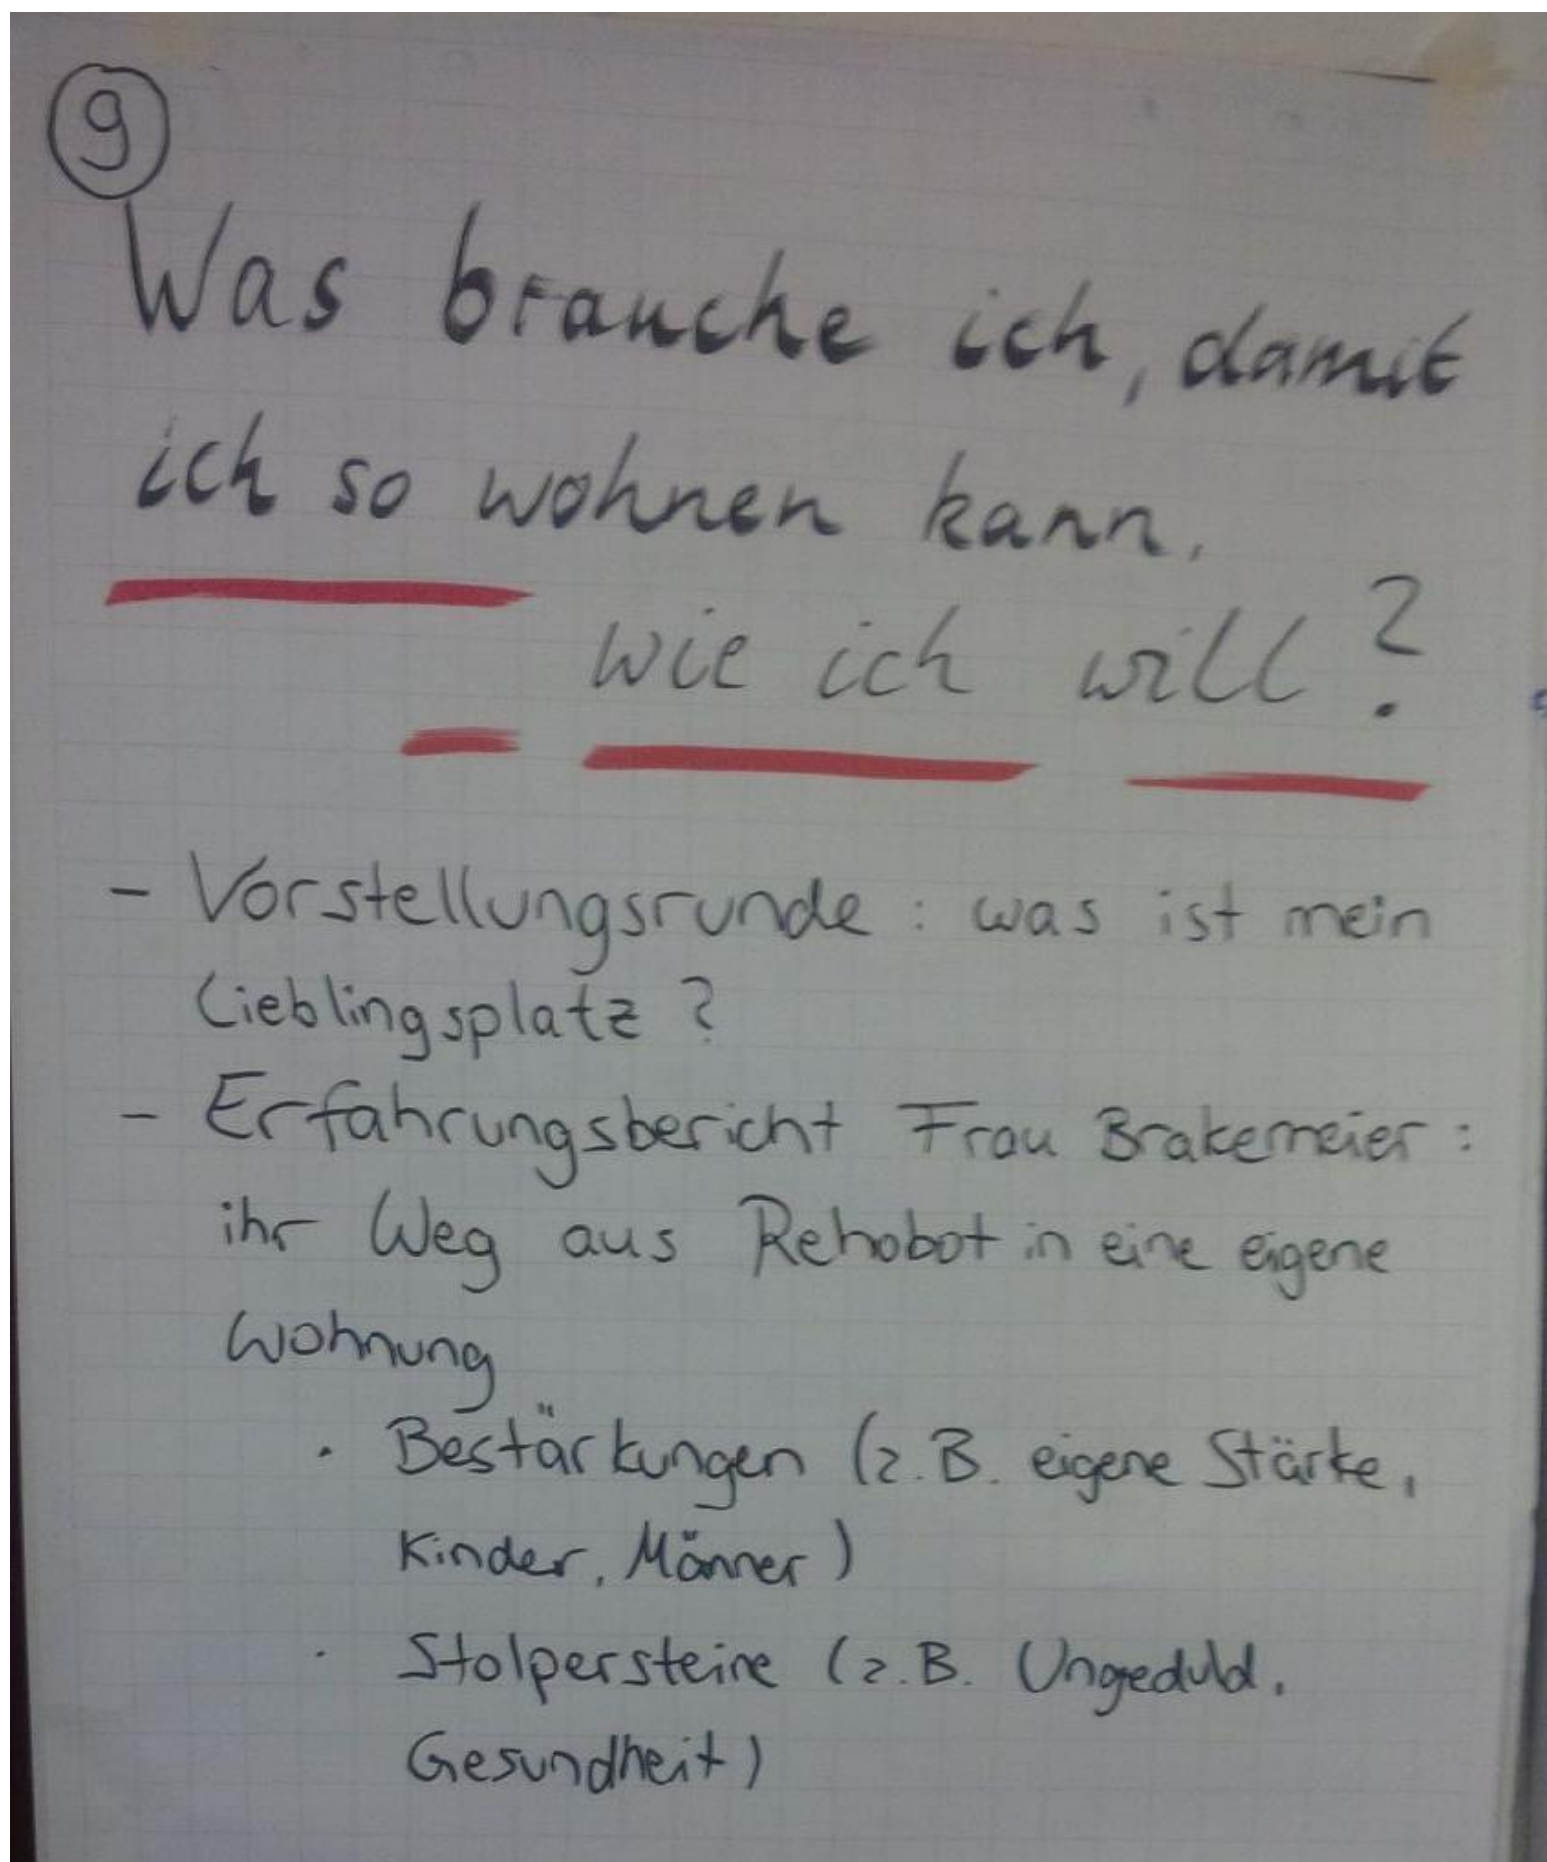 9
Was brauche ich, damit
ich so wohnen kann,
wie ich will?
- Vorstellungsrunde: was ist mein
Lieblingsplatz?
- Erfahrungsbericht Frau Brakemeier:
ihr Weg aus Rehobot in eine eigene
Wohnung
· Bestärkungen (z.B. eigene Stärke,
Kinder, Männer)
· Stolpersteine (z.B. Ungeduld,
Gesundheit)